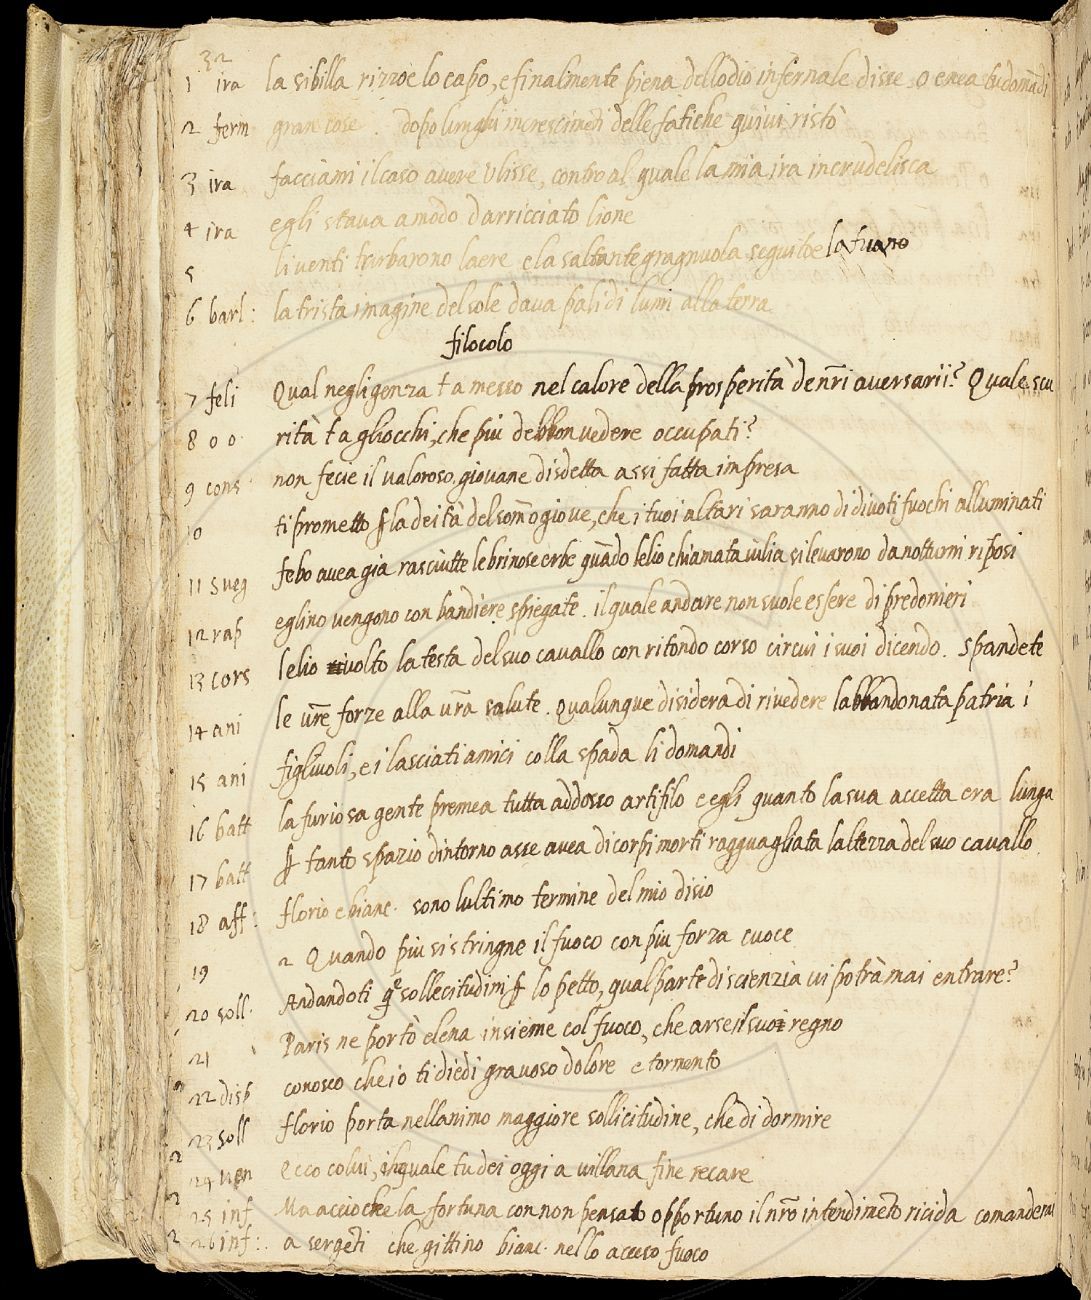 32
1 ira la sibilla rizzoe lo capo, e finalmente piena dellodio infernale disse o enea tu domādi
2 ferm gran cose. dopo lunghi increscimēti delle fatiche quivi ristò
3 ira facciami il caso avere Ulisse, contro al quale la mia ira incrudelisca
4 ira egli stava a modo darricciato lione
5 li venti turbarono laere e la saltante gragnuola seguitoe
6 barl: la trista imagine del sole dava palidi lumi alla terra
filocolo
7 feli Qual negligenza t a messo nel calore della prosperità de nr̄i aversarii? Quale scu
8 o o rità t a gliocchi, che piu debbon vedere occupati?
9 cons non fecie il valoroso giovane disdetta assi fatta impresa
10 ti prometto ꝑ la deità del som̄o giove, che i tuoi altari saranno di divoti fuochi alluminati
11 sveg febo avea gia rasciutte le brinose erbe quādo lelio chiamata iulia si levarono da notturni riposi
12 rap eglino vengono con bandiere spiegate. il quale andare non suole essere di predonieri
13 cors lelio rivolto la testa del suo cavallo con ritondo corso circui i suoi dicendo. Spandete
14 ani le vr̄e forze alla vr̄a salute. Qualunque disidera di rivedere labbandonata patria i
15 ani figliuoli, e i lasciati amici colla spada li domandi
16 batt la furiosa gente premea tutta addosso artifilo e egli quanto la sua accetta era lunga
17 batt ꝑ tanto spazio dintorno asse avea di corpi morti ragguagliata laltezza del suo cavallo
18 aff: florio e bianc. sono lultimo termine del mio disio
19 2 Quando piu si stringne il fuoco con piu forza cuoce
20 soll. Andandoti sollecitudini ꝑ lo petto, qual parte di scienzia vi potrà mai entrare?
21 Paris ne portò elena insieme col fuoco, che arse il suo regno
22 disp conosco che io ti diedi gravoso dolore e tormento
23 soll florio porta nellanimo maggiore sollicitudine, che di dormire
2 24 ven Ecco colui, il quale tu dei oggi a villana fine recare
2 25 inf Ma accioche la fortuna con non pensato opportuno il nr̄o intendimēto ricida comanderai
2 26 inf: a sergēti che gittino bianc. nello acceso fuoco